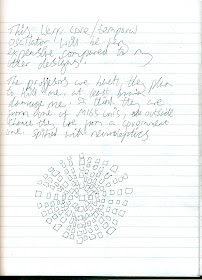 This very core/temporal
oscillator will be far
expensive compared to my
other designs.
The professors are here, they plan
to kill me, at least brain
damage me. I think they are
from some of MI6s unis, out side
chance they are from a government
one. spiked with neuroleptics